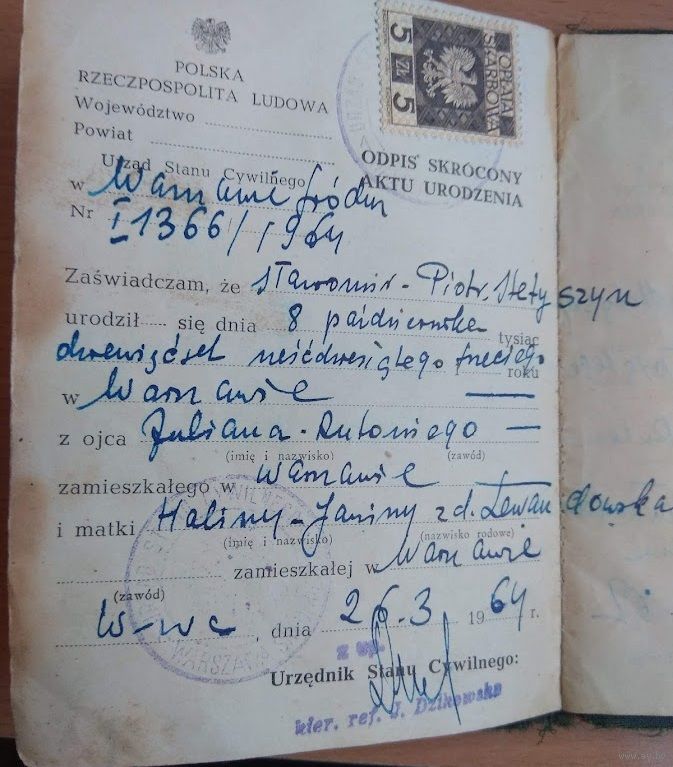 5 ZŁ 5
OPŁATA
SKARBOWA
POLSKA
RZECZPOSPOLITA LUDOWA
Województwo
Powiat
Urząd Stanu Cywilnego
ODPIS SKRÓCONY
AKTU URODZENIA
w Warszawie Śródm
Nr I 1366/1964
Zaświadczam, że Sławomir - Piotr
urodził się dnia 8 października tysiąc
dziewięćset sześćdziesiątego trzeciego roku
w Warszawie
z ojca Juliana - Antoniego
(imię i nazwisko) (zawód)
zamieszkałego w Warszawie
i matki Haliny - Janiny z d. Lewandowska
(imię i nazwisko) (nazwisko rodowe)
zamieszkałej w Warszawie
(zawód)
W-wa, dnia 26.3 1964 r.
z up.
Urzędnik Stanu Cywilnego:
kier. ref. J. Dzikowska
WARSZAWA
www.ay.by